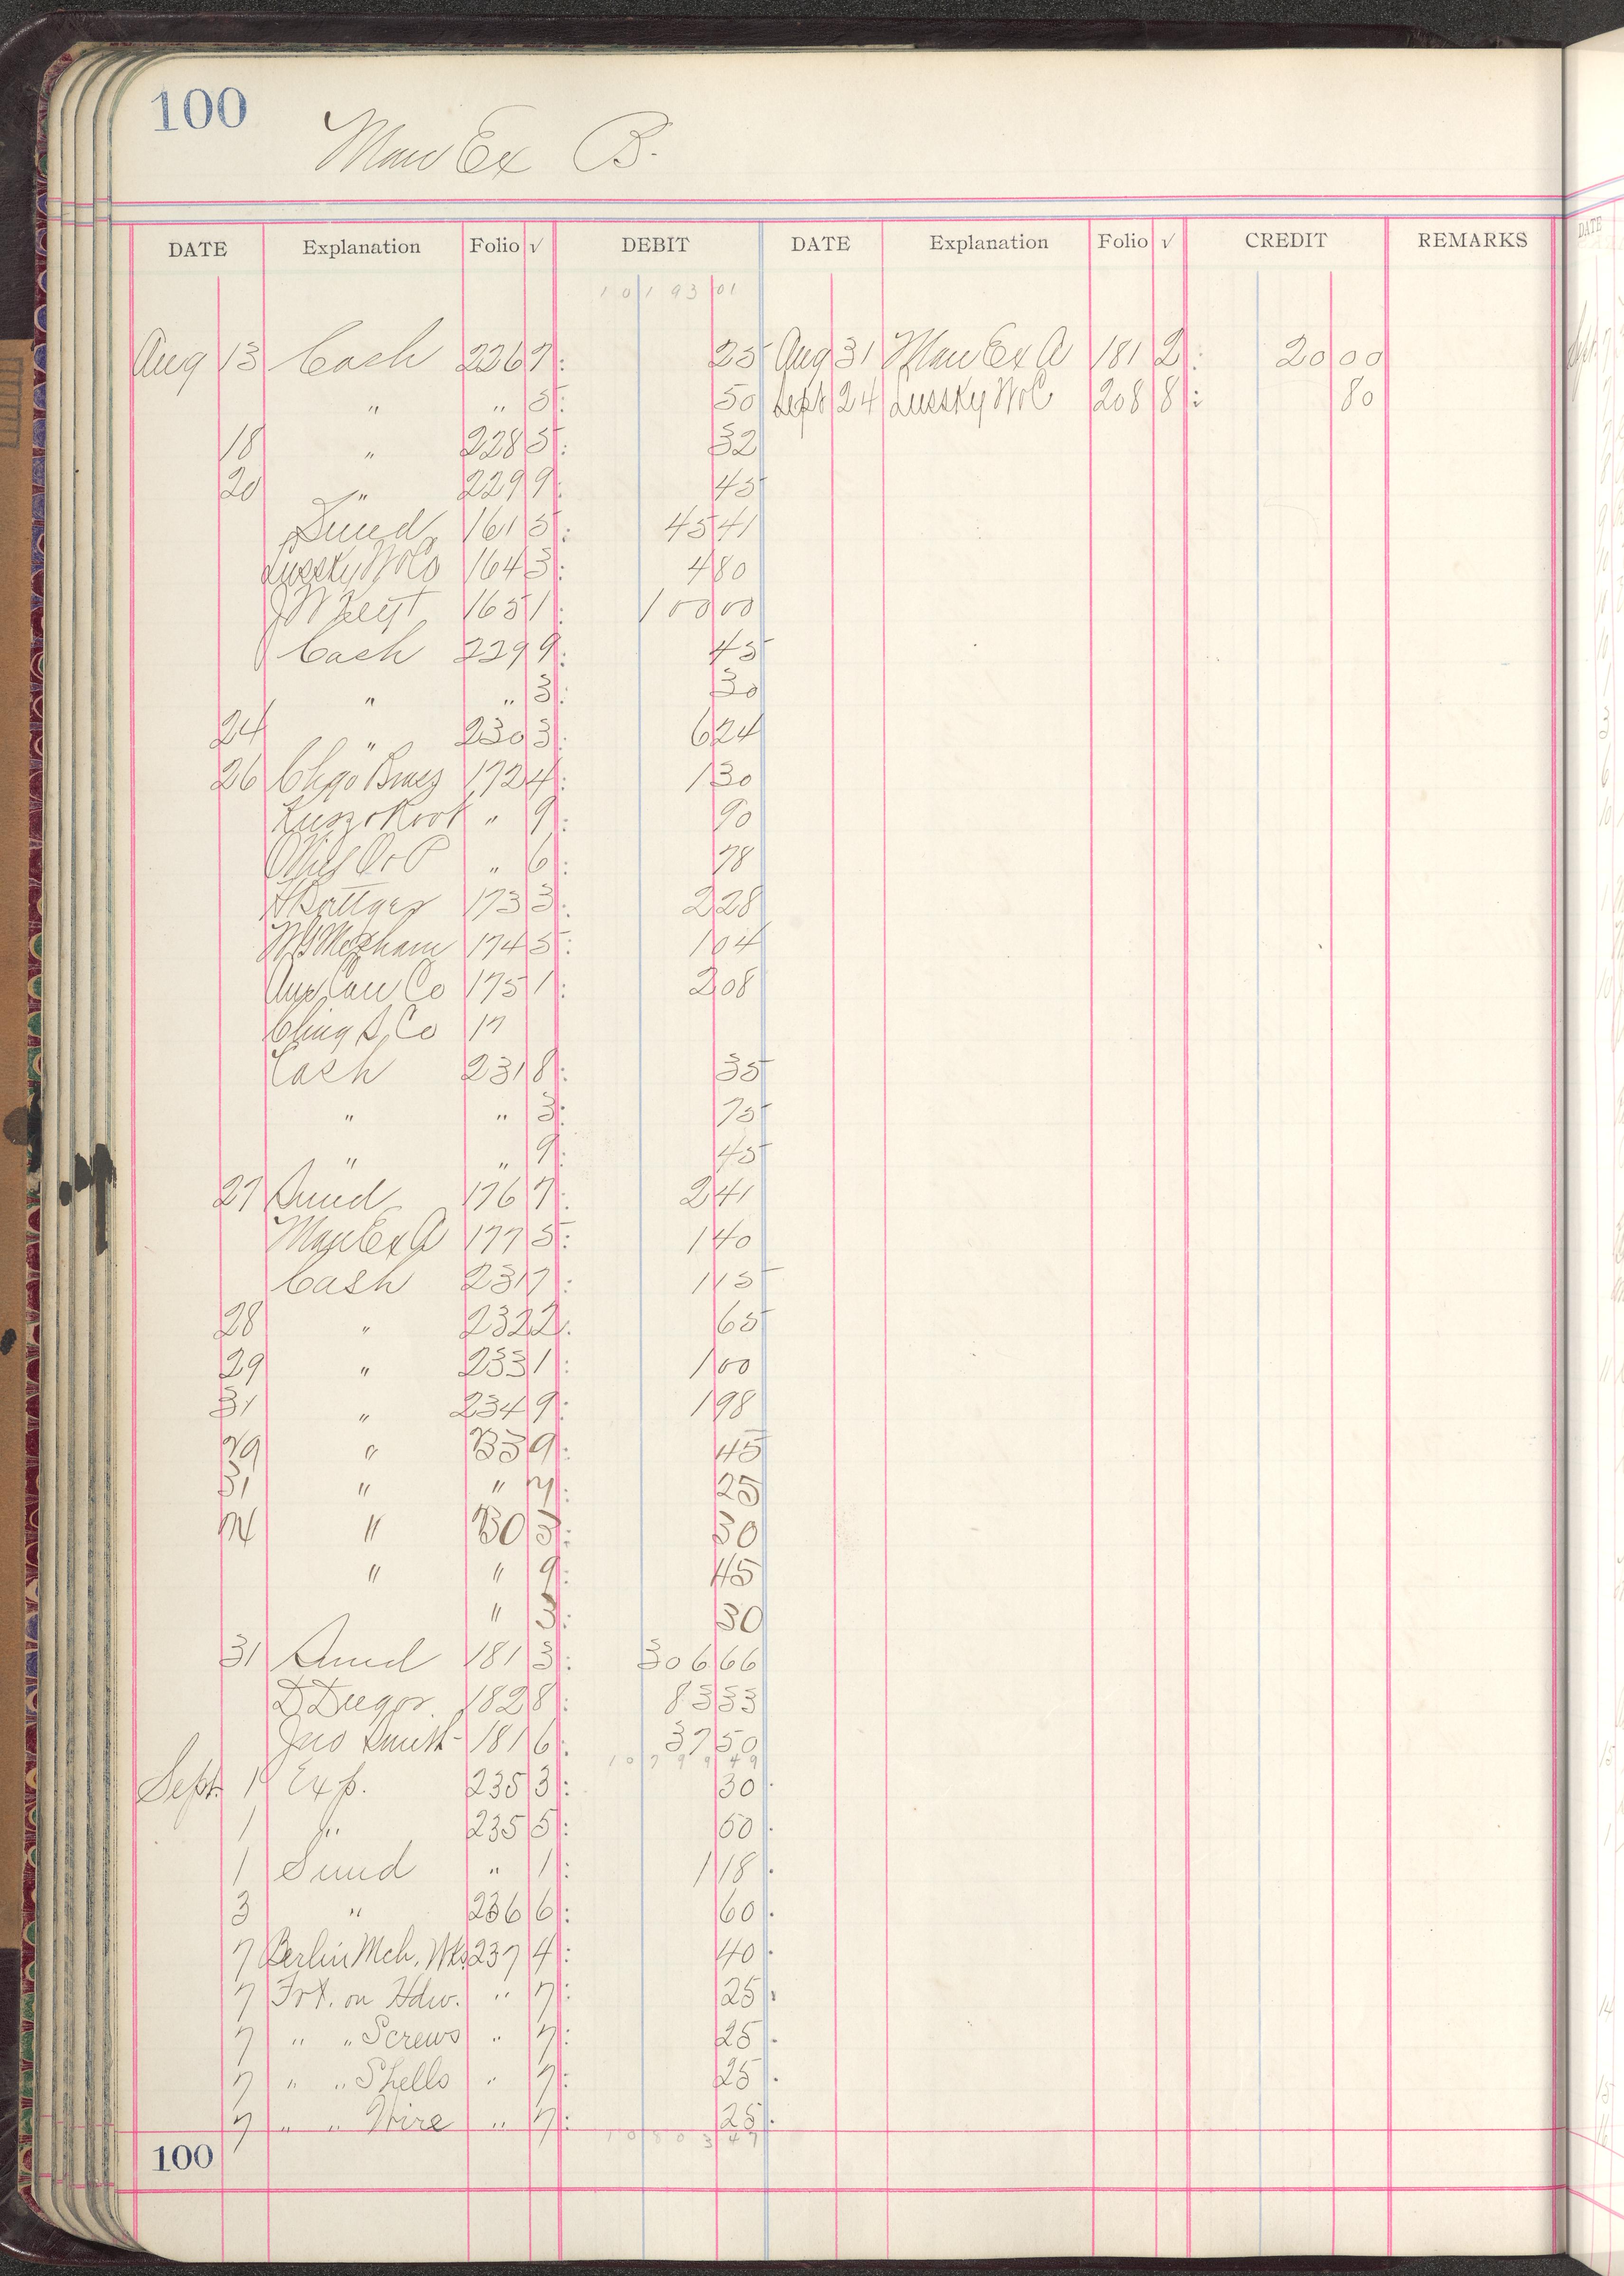 100
Man Ex B.
DATE Explanation Folio √ DEBIT DATE Explanation Folio √ CREDIT REMARKS
10193 01
Aug 13 Cash 226 7 25 Aug 31 Man Ex A 181 2 20 00
" " 5 50 Sept 24 Lussky W Co 208 8 80
18 " 228 5 32
20 " 229 9 45
Sund 161 5 45 41
Lussky W Co 164 3 4 80
165 1 100 00
Cash 229 9 45
" " 3 30
24 " 230 3 6 24
26 Chgo Brass 172 4 1 30
" 9 90
" 6 78
173 3 2 28
Meacham 174 5 1 04
Am Can Co 175 1 2 08
Co 17
Cash 231 8 35
" " 3 75
" " 9 45
27 Sund 176 7 2 41
Man Ex A 177 5 1 40
Cash 231 7 1 15
28 " 232 2 65
29 " 233 1 1 00
31 " 234 9 1 98
29 " 233 9 45
31 " " 7 25
24 " 230 3 30
" " 9 45
" 3 30
31 Sund 181 3 306 66
182 8 83 33
Geo Smith 181 6 37 50
10799 49
Sept 1 Exp. 235 3 30
1 " 235 5 50
1 Sund " 1 1 18
3 " 236 6 60
7 Berlin Mch. Wks 237 4 40
7 Frt. on Hdw. " 7 25
7 " " Screws " 7 25
7 " " Shells " 7 25
7 " " Wire " 7 25
10803 47
100